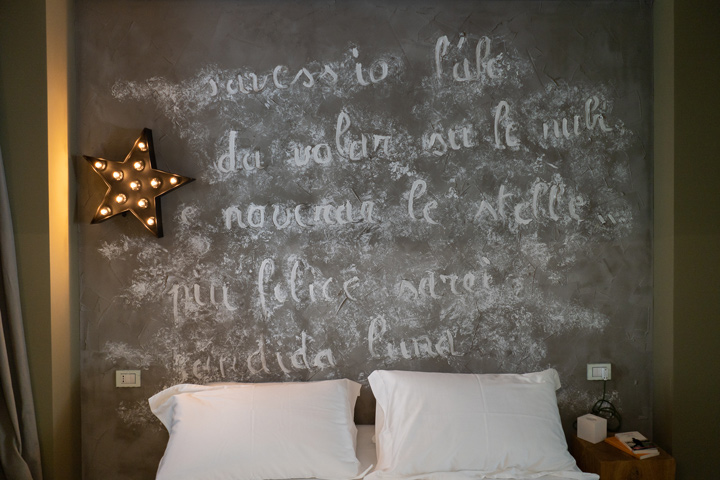 s'avess'io l'ale
da volar su le nubi
e noverar le stelle
più felice sarei
candida luna